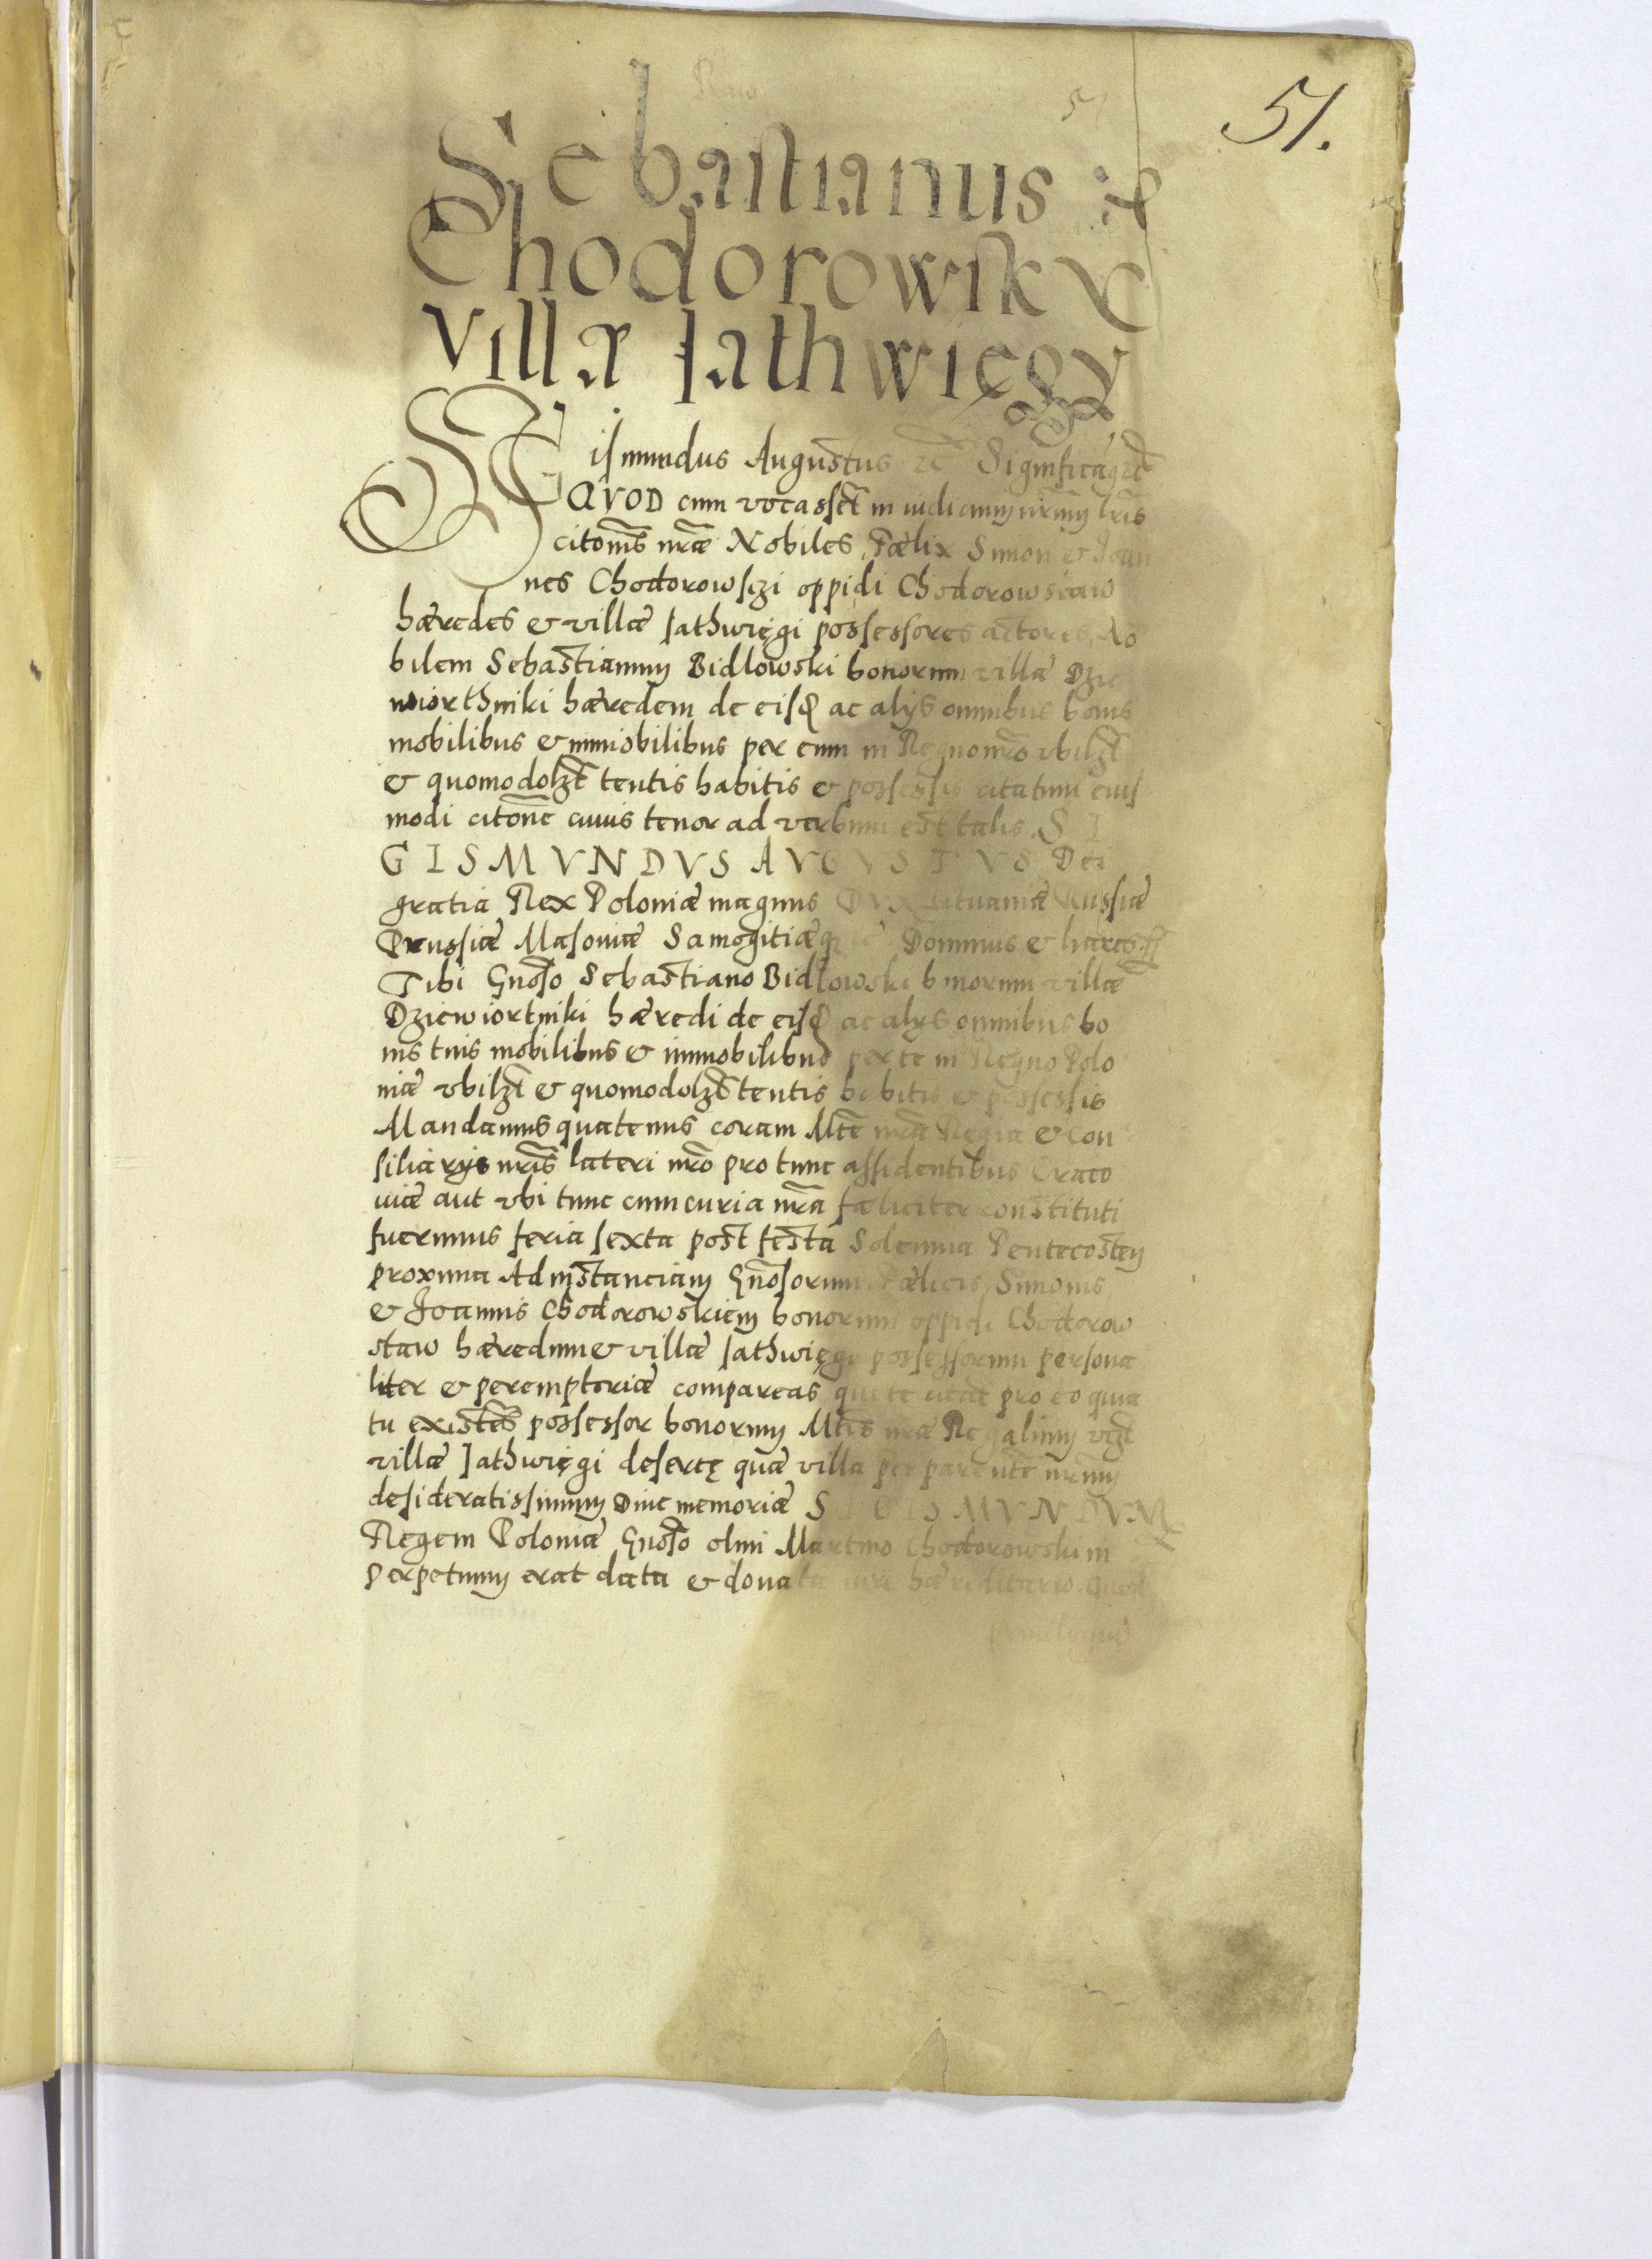 51.
Sebastianus &
Chodorowsky
Villæ Jathwięgy
Sigismundus Augustus ꝛc Significaqꝫ ꝛc
QVOD cum vocasset in iudicium nr̄um lr̄is
citōnis nr̄æ Nobiles Fælix Simon & Joan
nes Chodorowsczi oppidi Chodorowstaw
hæredes & villæ Jathwięgi possessores actores, No
bilem Sebastianum Bidlowski bonorum villæ Dzie
wiorthniki hæredem de eisd̄ ac alijs omnibus bonis
mobilibus & immobilibus per eum in Regno nr̄o vbilzt
& quomodolzt tentis habitis & possessis citatum eius
modi citōne cuius tenor ad verbum est talis SI
GISMVNDVS AVGVSTVS Dei
gratia Rex Poloniæ magnus DVX Lituaniæ Russiæ
Prussiæ Masoviæ Samogitiæqꝫ ꝛc Dominus & hæres
Tibi Gnoso Sebastiano Bidlowski bonorum villæ
Dziewiortniki hæredi de eisd̄ ac alijs omnibus bo
nis tuis mobilibus & immobilibus per te in Regno Polo
niæ vbilzt & quomodolzt tentis habitis & possessis
Mandamus quatenus coram Mte nr̄a Regia & Con
siliarijs nr̄is lateri nr̄o pro tunc assidentibus Craco
uiæ aut vbi tunc cum curia nr̄a fæliciter constituti
fuerimus feria sexta post festa Solennia Pentecosten
proxima Ad instanciam Gnosorum Fælicis, Simonis,
& Joannis Chodorowskiem bonorum oppidi Chodorow
staw hæredum & villæ Jathwięgi possessorum persona
liter & peremptoriæ compareas qui te citāt pro eo quia
tu existēs possessor bonorum Mtis nr̄æ Regalium vizt
villæ Jathwięgi desertę quæ villa per parentē nr̄um
desideratissimum Diuæ memoriæ SIGISMVNDVM
Regem Poloniæ Gnoso olim Martino Chodorowski in
perpetuum erat data & donata iure hæreditario quod
priuilegium